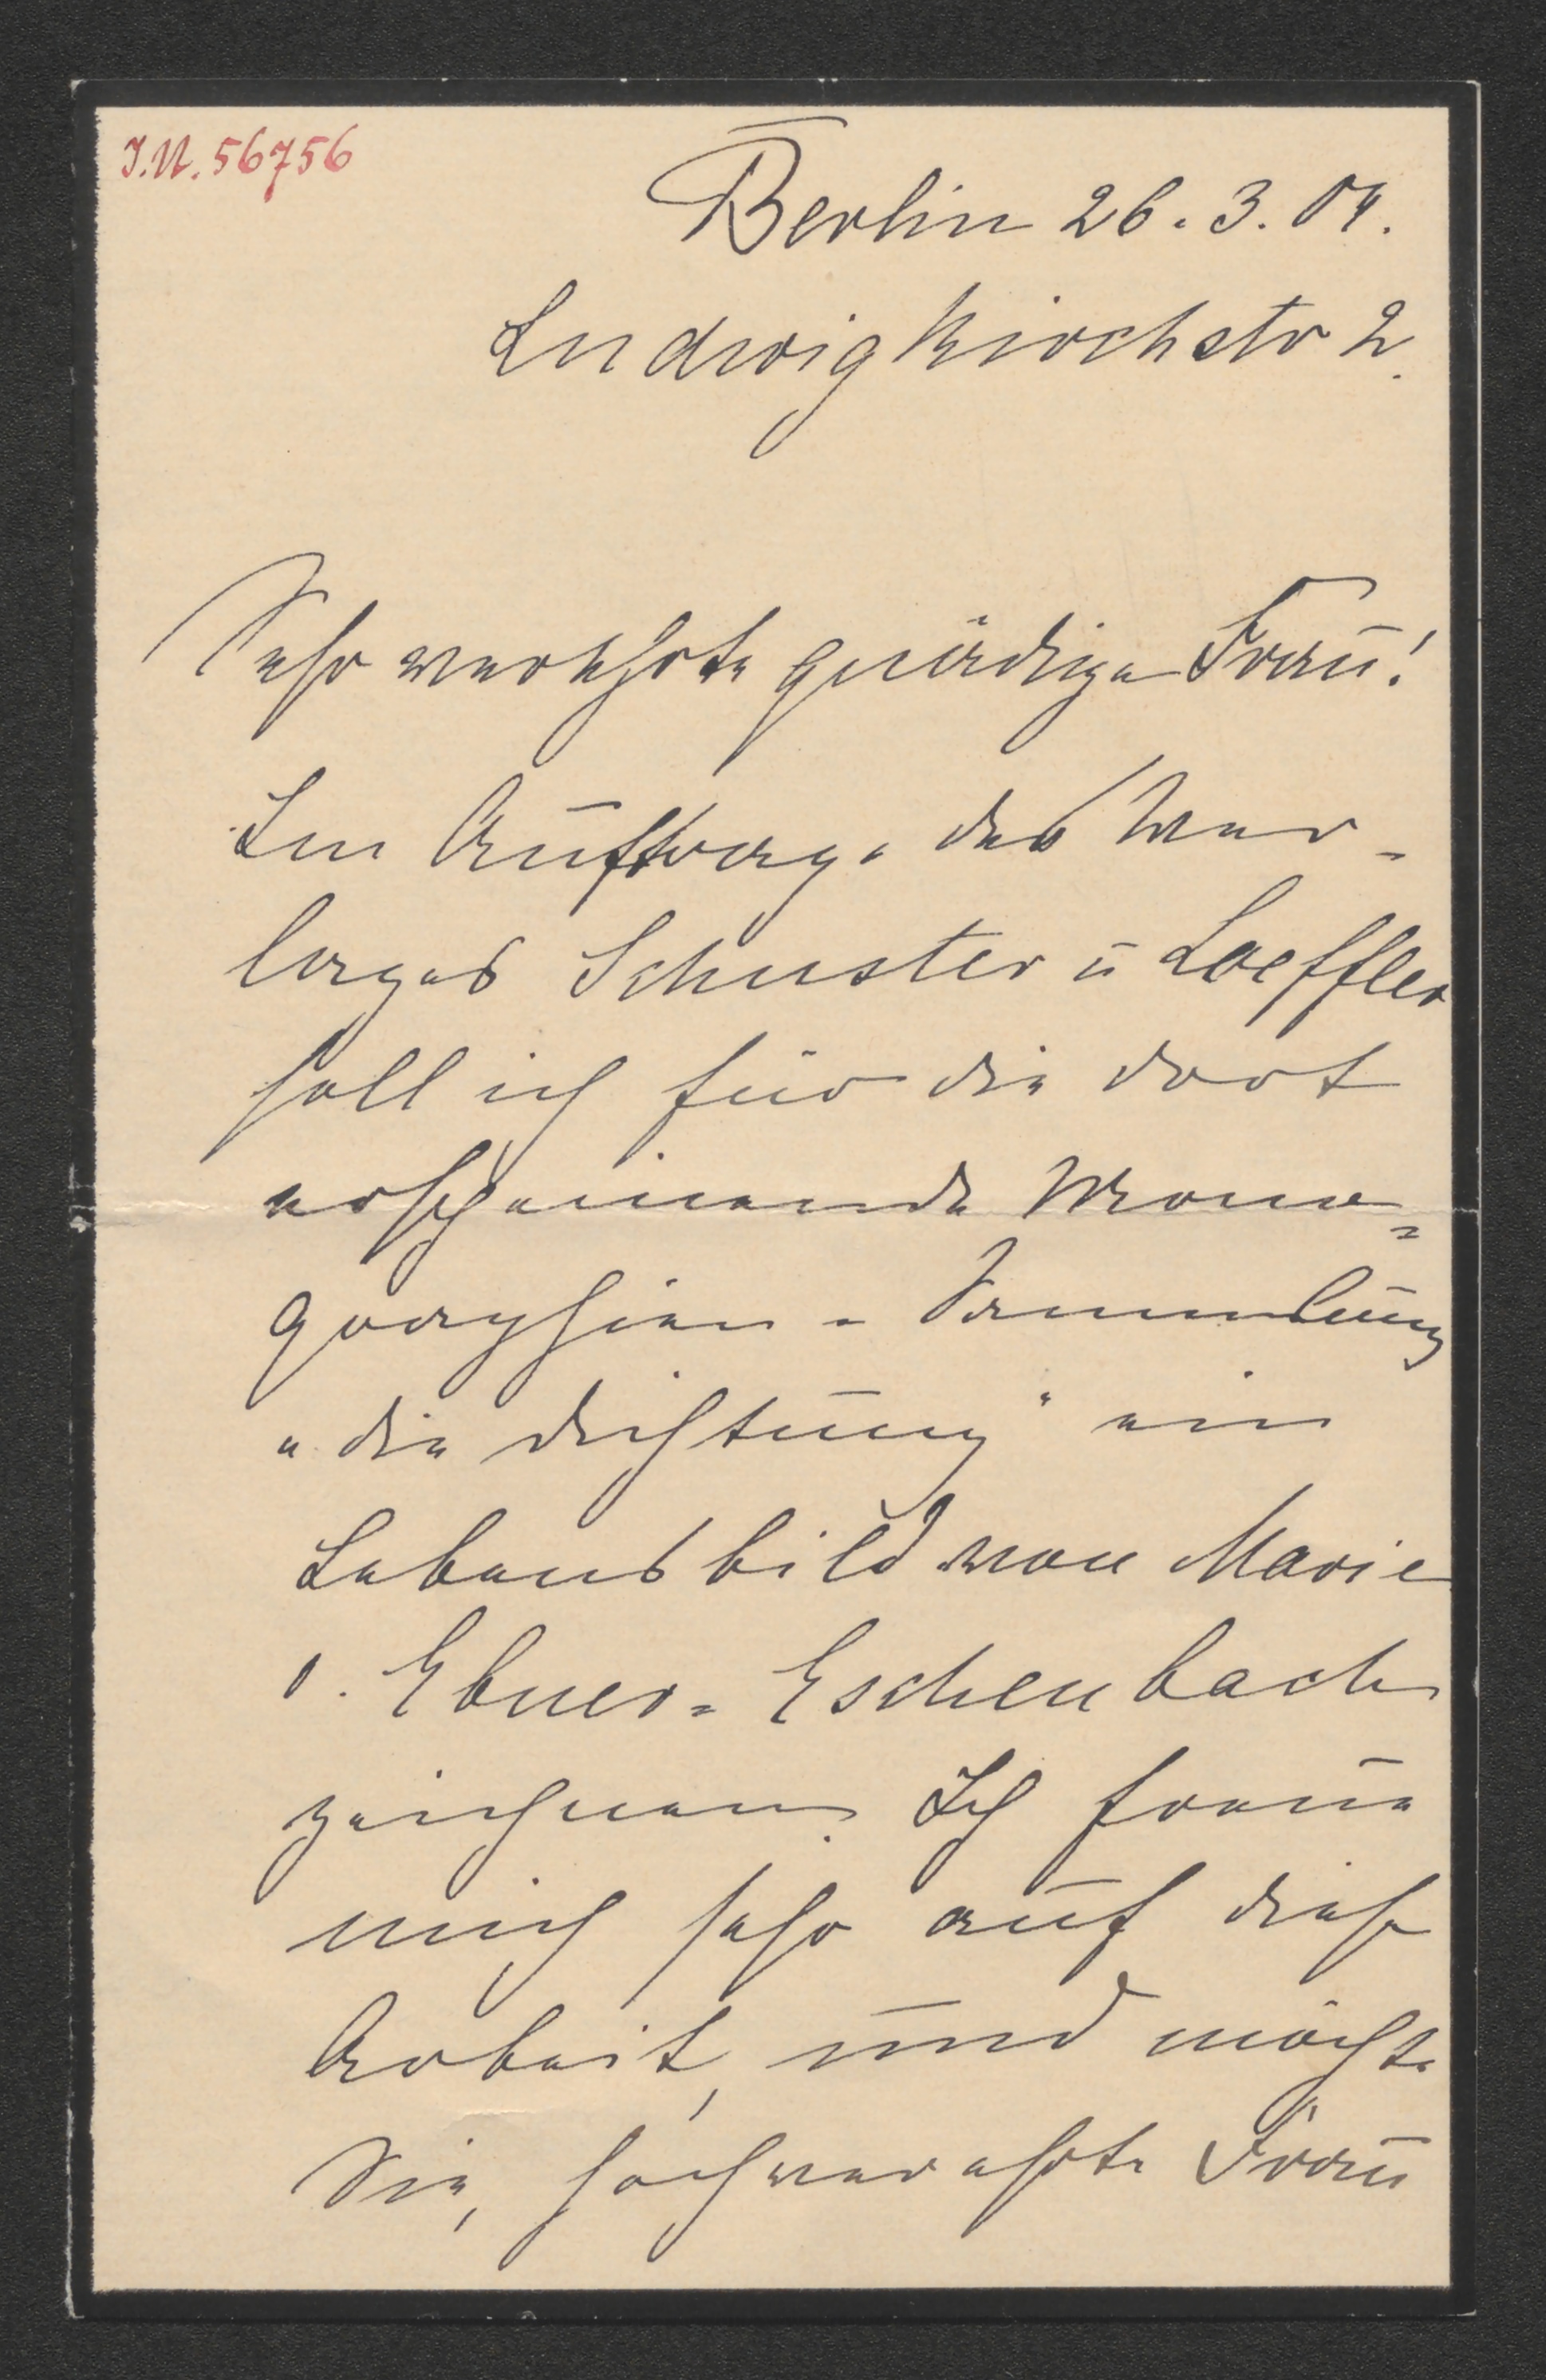 I.N. 56756
Berlin 26. 3. 04.
Ludwigkirchstr 2.
Sehr verehrte gnädige Frau!
Im Auftrage des Ver-
lages Schuster u Loeffler
soll ich für die dort
erscheinende Mono=
graphien-Sammlung
"die Dichtung" ein
Lebensbild von Marie
v. Ebner=Eschenbach
zeichnen. Ich freue
mich sehr auf diese
Arbeit, und möchte
Sie, hochverehrte Frau